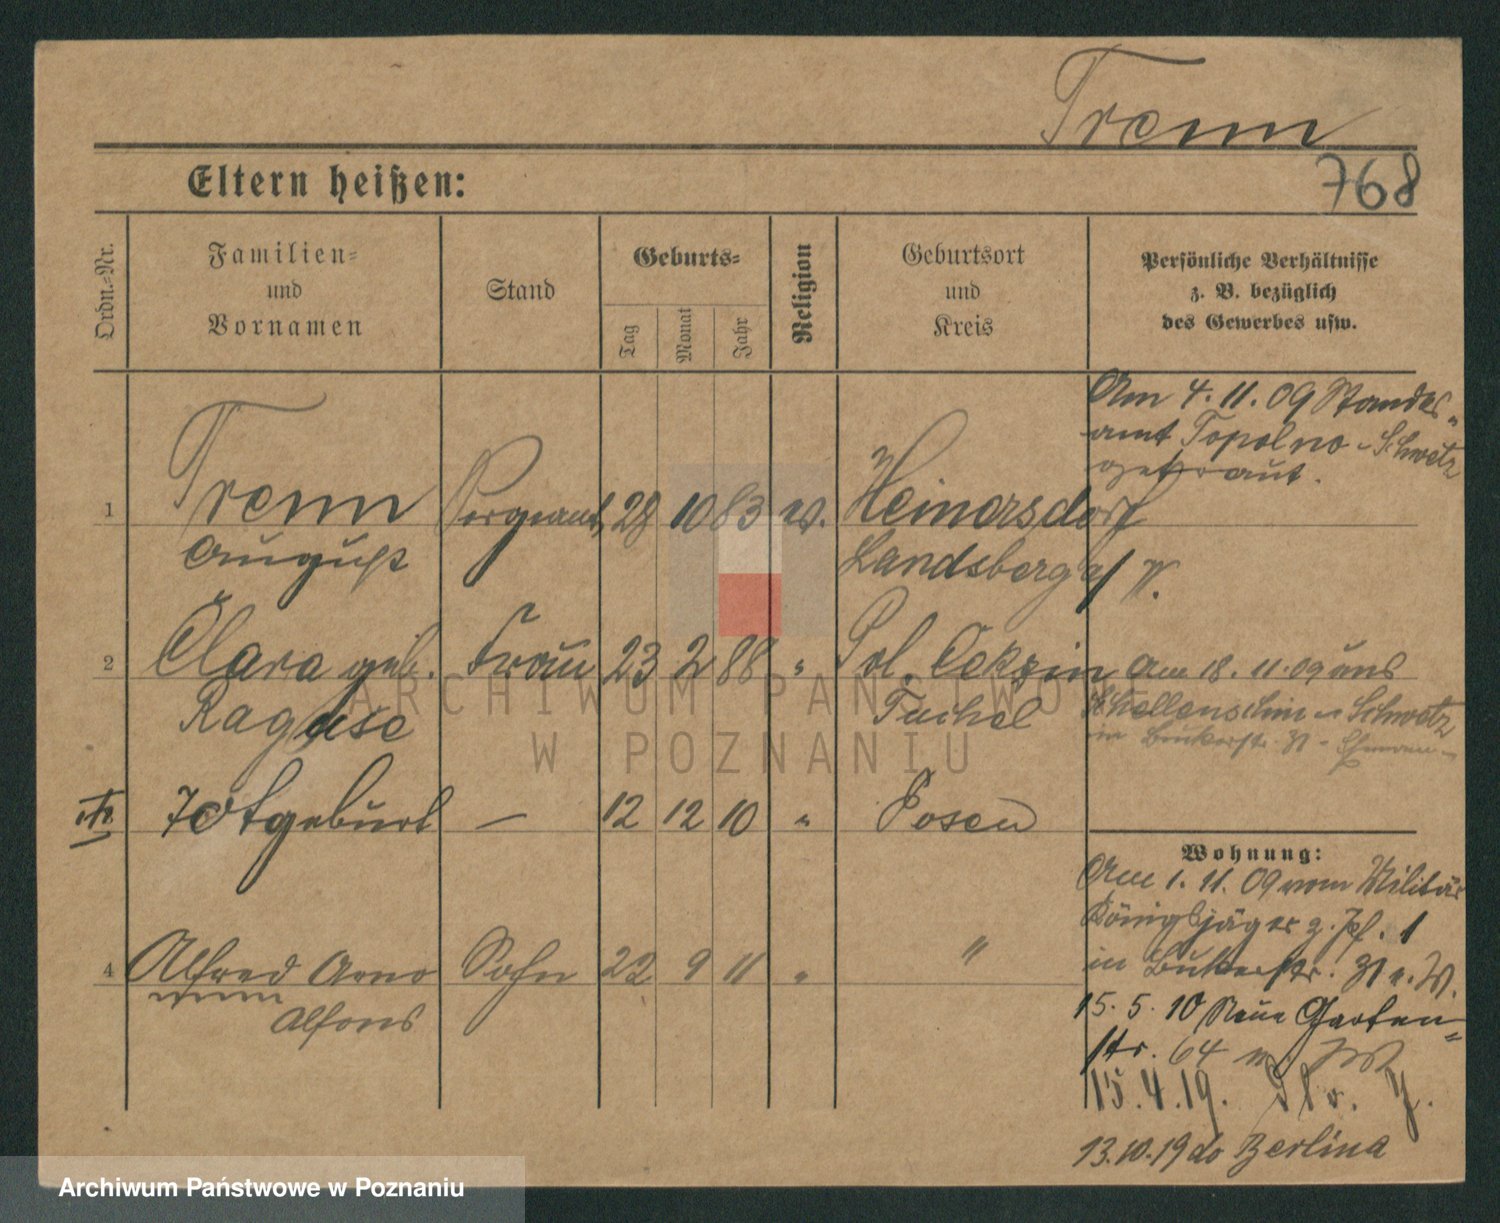 Trenn
768
Eltern heißen:
Ordn.-Nr.
Familien-
und
Vornamen
Stand
Geburts-
Tag
Monat
Jahr
Religion
Geburtsort
und
Kreis
Persönliche Verhältnisse
z. B. bezüglich
des Gewerbes usw.
Am 4. 11. 09 Standes-
amt Topolno - Schwetz
getraut.
1 Trenn Sergeant 28 10 83 ev. Heinersdorf
August Landsberg a/ W.
2 Clara geb. Frau 23 2 88 " Pol. Cekzin
Raguse Tuchel
Am 18. 11. 09 aus
Schwetz
in Bukerstr. 31 -
Totgeburt — 12 12 10 " Posen
4 Alfred Arno Sohn 22 9 11 " "
Alfons
Wohnung:
Am 1. 11. 09 vom Militär
Königsjäger z. Pf. 1
in Bukerstr. 31 v. W.
15. 5. 10 Neue Garten-
str. 64
15. 4. 19.
13. 10. 19 do Berlina
ARCHIWUM PAŃSTWOWE
W POZNANIU
Archiwum Państwowe w Poznaniu